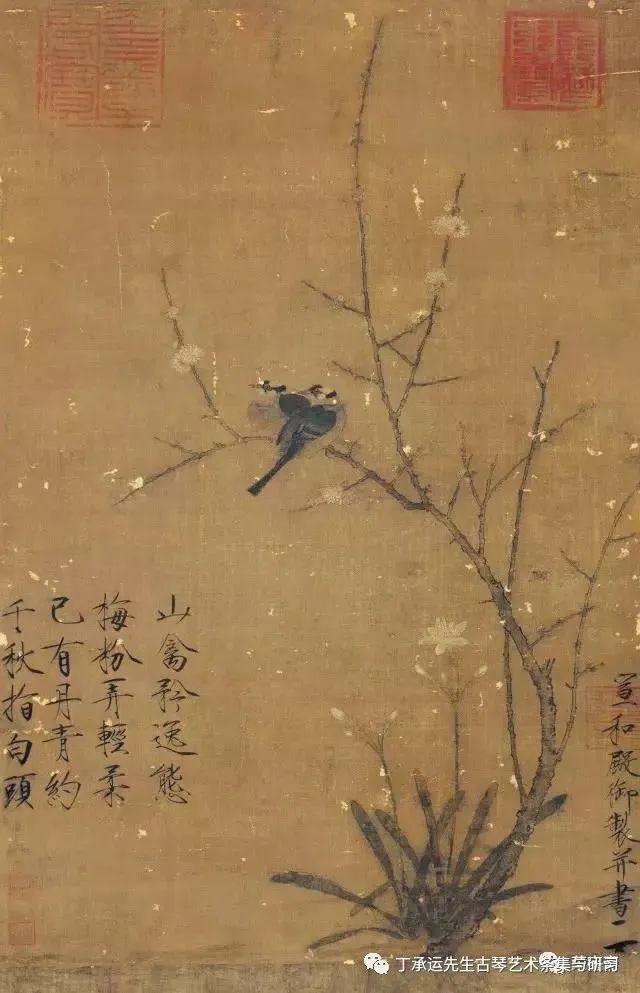 山禽矜逸態
梅粉弄輕柔
已有丹青約
千秋指白頭
宣和殿御製并書
丁承运先生古琴艺术